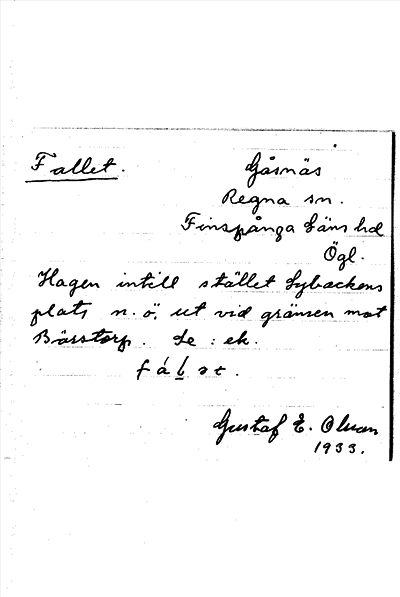 Fallet. Gåsnäs
Regna sn.
Finspånga läns hd
Ögl.
Hagen intill stället Lybackens
plats n.ö. ut vid gränsen mot
Bärstorp. Se : ek.
Gustaf E. Olsson
1933.